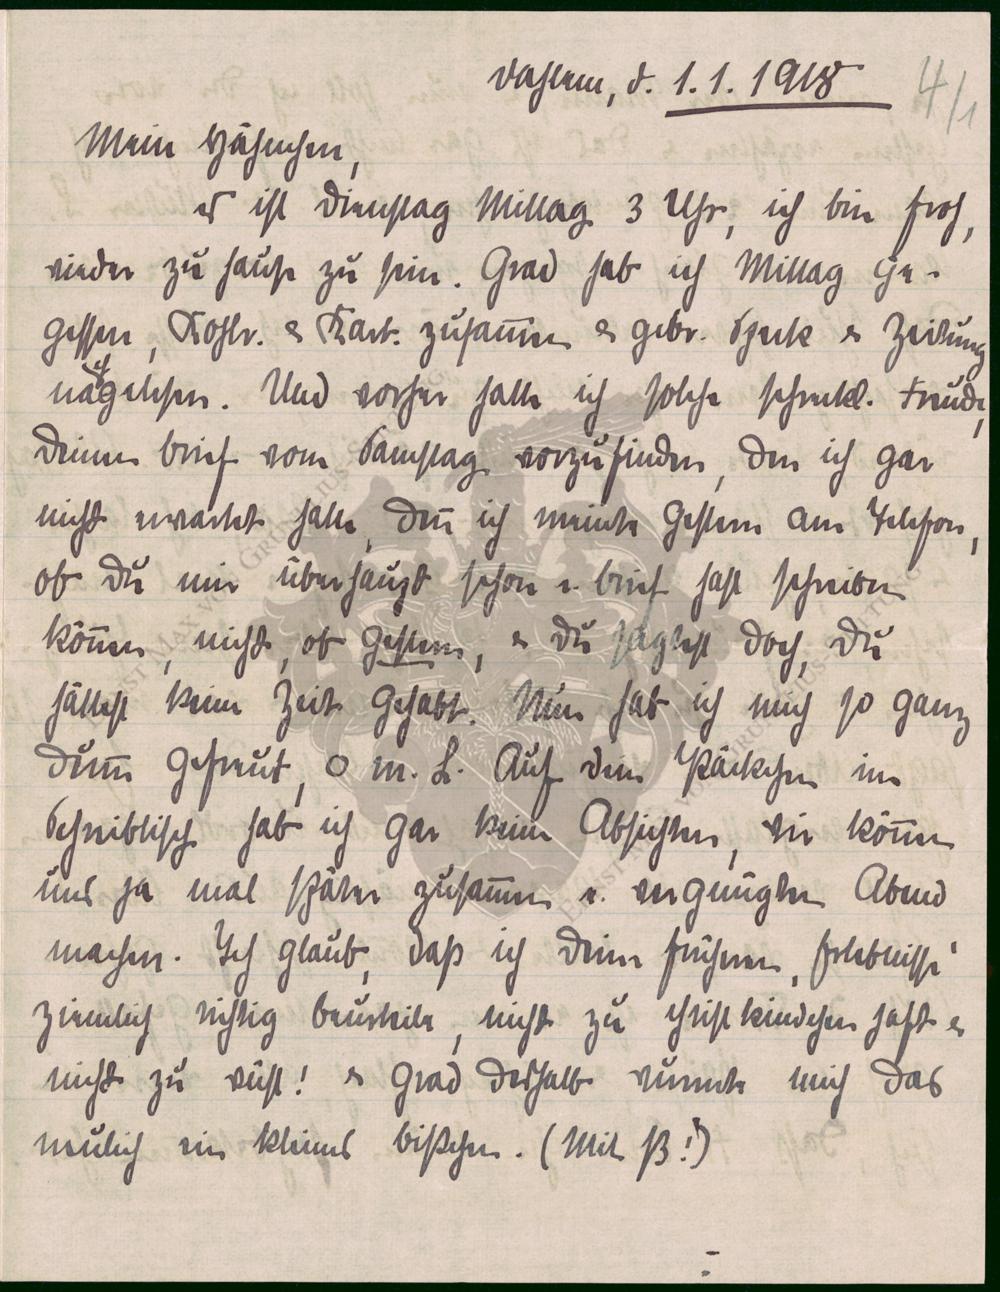 Dahlem, d. 1.1.1918
4/1
Mein Hähnchen,
es ist Dienstag Mittag 3 Uhr, ich bin froh,
wieder zu hause zu sein. Grad hab ich Mittag ge-
gessen, Kohlr. & Kart. zusam̅en & gebr. Speck & Zeitung
nachgelesen. Und vorher hatte ich solche schreckl. Freude,
Deinen brief vom Samstag vorzufinden, den ich gar
nicht erwartet hatte, den̅ ich meinte gestern am Telefon,
ob Du mir überhaupt schon e. brief hast schreiben
kön̅en, nicht, ob gestern, & Du sagtest doch, Du
hättest keine Zeit gehabt. Nun hab ich mich so ganz
dum̅ gefreut, o m. L. Auf dein Päckchen im
Schreibtisch hab ich gar keine Absichten, wir kön̅en
uns ja mal später zusam̅en e. vergnügten Abend
machen. Ich glaub, daß ich Deine früheren „Erlebnisse“
ziemlich richtig beurteile, nicht zu christkindchenhaft &
nicht zu wüst! & Grad deshalb wurmte mich das
neulich ein kleines bißchen. (Mit ß!)